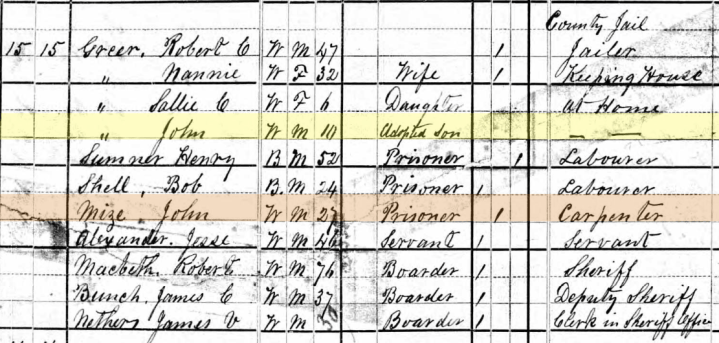 County Jail
15 15 Greer, Robert C W M 47 1 Jailer
" Nannie W F 32 Wife 1 Keeping House
" Sallie C W F 6 Daughter at Home
" John W M 10 Adopted Son — —
Sumner Henry B M 52 Prisoner 1 Labourer
Shell, Bob B M 24 Prisoner 1 Labourer
Mize, John W M 27 Prisoner 1 Carpenter
Alexander, Jesse W M 46 Servant 1 Servant
Macbeth, Robert W M 76 Boarder 1 Sheriff
Bunch, James C W M 37 Boarder 1 Deputy Sheriff
Nethers James V W M Boarder 1 Clerk in Sheriff Office